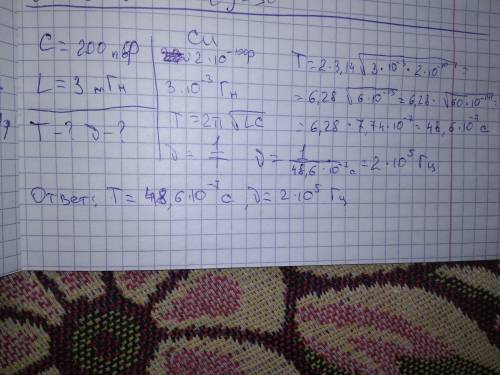 C = 200 пФ
L = 3 мГн
T - ? ν - ?
СИ
2·10⁻¹⁰ Ф
3·10⁻³ Гн
T = 2π√LC
ν = 1/T
T = 2·3,14 √3·10⁻³·2·10⁻¹⁰ =
= 6,28 √6·10⁻¹³ = 6,28·√60·10⁻¹⁴
= 6,28·7,74·10⁻⁷ = 48,6·10⁻⁷ с
ν = 1/48,6·10⁻⁷ с = 2·10⁵ Гц
Ответ: T = 48,6·10⁻⁷ с, ν = 2·10⁵ Гц